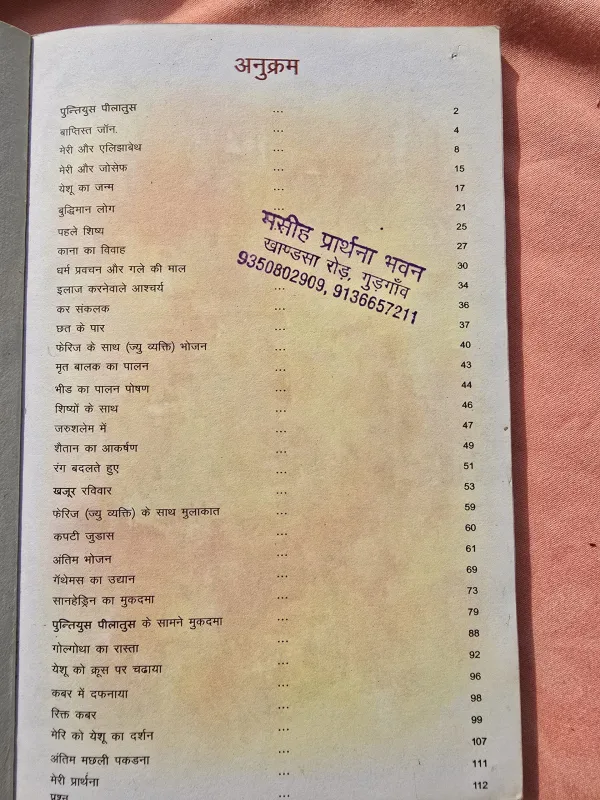 अनुक्रम
पुन्तियुस पीलातुस ... 2
बाप्तिस्त जॉन. ... 4
मेरी और एलिझाबेथ ... 8
मेरी और जोसेफ ... 15
येशू का जन्म ... 17
बुद्धिमान लोग ... 21
पहले शिष्य ... 25
काना का विवाह ... 27
धर्म प्रवचन और गले की माल ... 30
इलाज करनेवाले आश्चर्य ... 34
कर संकलक ... 36
छत के पार ... 37
फेरिज के साथ (ज्यु व्यक्ति) भोजन ... 40
मृत बालक का पालन ... 43
भीड का पालन पोषण ... 44
शिष्यों के साथ ... 46
जरुशलेम में ... 47
शैतान का आकर्षण ... 49
रंग बदलते हुए ... 51
खजूर रविवार ... 53
फेरिज (ज्यु व्यक्ति) के साथ मुलाकात ... 59
कपटी जुडास ... 60
अंतिम भोजन ... 61
गेंथेमस का उद्यान ... 69
सानहेड्रिन का मुकदमा ... 73
पुन्तियुस पीलातुस के सामने मुकदमा ... 79
गोल्गोथा का रास्ता ... 88
येशू को क्रूस पर चढाया ... 92
कबर में दफनाया ... 96
रिक्त कबर ... 98
मेरि को येशू का दर्शन ... 99
अंतिम मछली पकडना ... 107
मेरी प्रार्थना ... 111
प्रश्न ... 112
मसीह प्रार्थना भवन
खाण्डसा रोड़, गुड़गाँव
9350802909, 9136657211